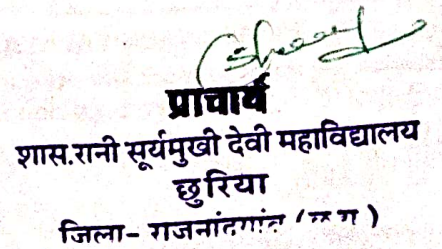 प्राचार्य
शास.रानी सूर्यमुखी देवी महाविद्यालय
छुरिया
जिला- राजनांदगांव